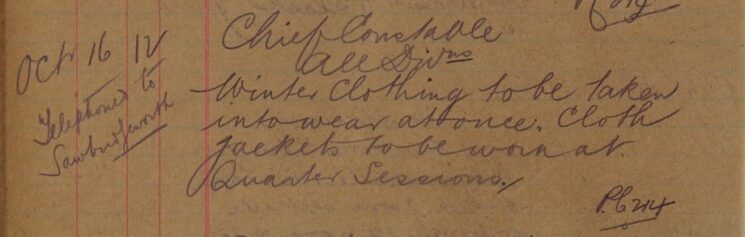 Oct 16 12
Telephoned to
Sawbridgeworth
Chief Constable
All Divns
Winter Clothing to be taken
into wear at once. Cloth
jackets to be worn at
Quarter Sessions.
P.C. 214